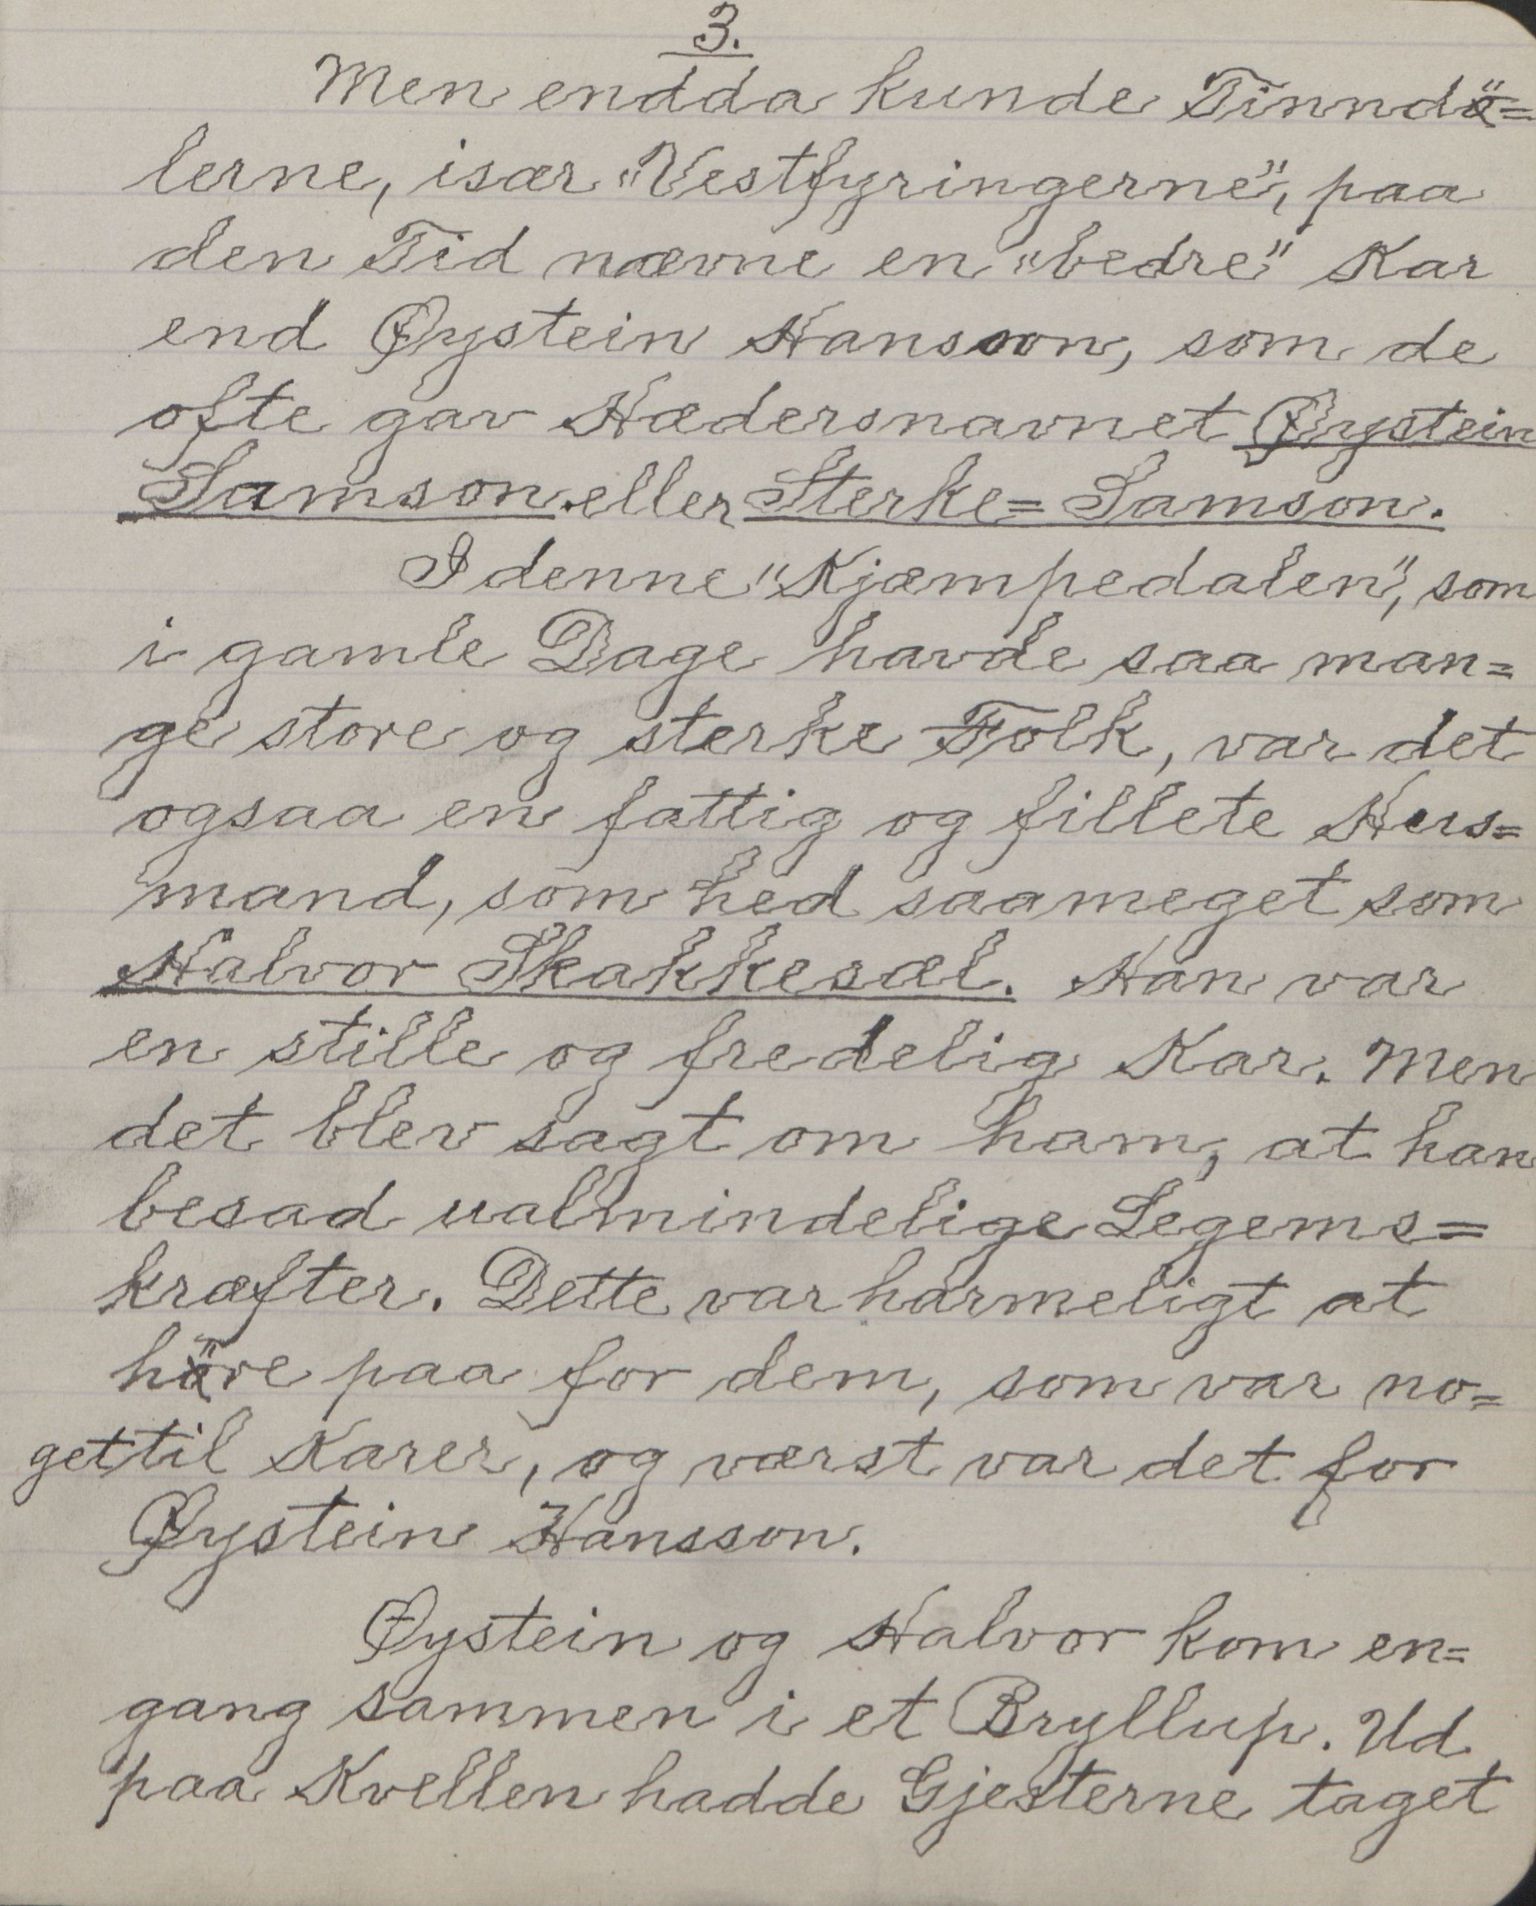 3.
Men endda kunde Tinndö=
lerne, især "Vestfyringerne", paa
den Tid nævne en "bedre" Kar
end Øystein Hansson, som de
ofte gav Hædersnavnet Øystein
Samson eller Sterke=Samson.
I denne "Kjæmpedalen", som
i gamle Dage havde saa man=
ge store og sterke Folk, var det
ogsaa en fattig og fillete Hus=
mand, som hed saameget som
Halvor Skakkesæl. Han var
en stille og fredelig Kar. Men
det blev sagt om ham, at han
besad ualmindelige Legems=
kræfter. Dette var harmeligt at
höre paa for dem, som var no=
get til Karer, og værst var det for
Øystein Hansson.
Øystein og Halvor kom en=
gang sammen i et Bryllup. Ud
paa Kvellen hadde Gjesterne taget